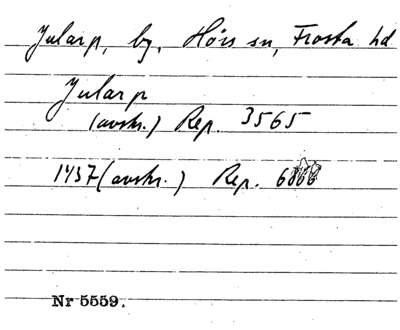 Jularp, by, Hörs sn, Frosta hd
Jularp
(avskr.) Rep. 3565
1437 (avskr.) Rep. 6866
Nr 5559.